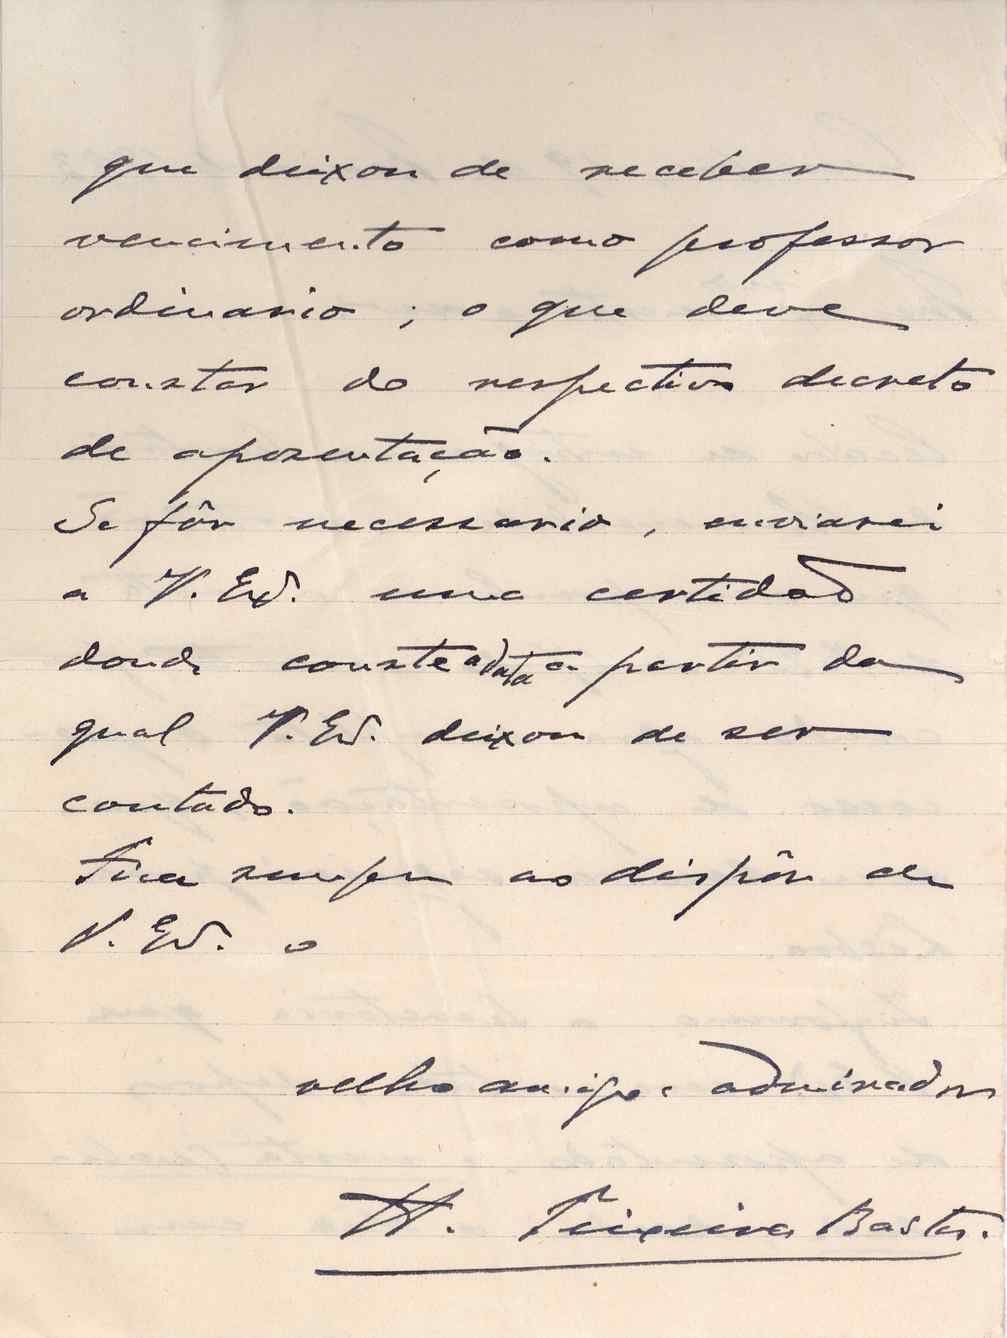 que deixou de receber
vencimento como professor
ordinario ; o que deve
constar do respectivo decreto
de aposentação.
Se fôr necessario, enviarei
a V. Exª. uma certidão
donde conste a data a partir da
qual V. Exª. deixou de ser
contado.
Fica sempre ao dispôr de
V. Exª. o
velho amigo e admirador
H. Teixeira Bastos.